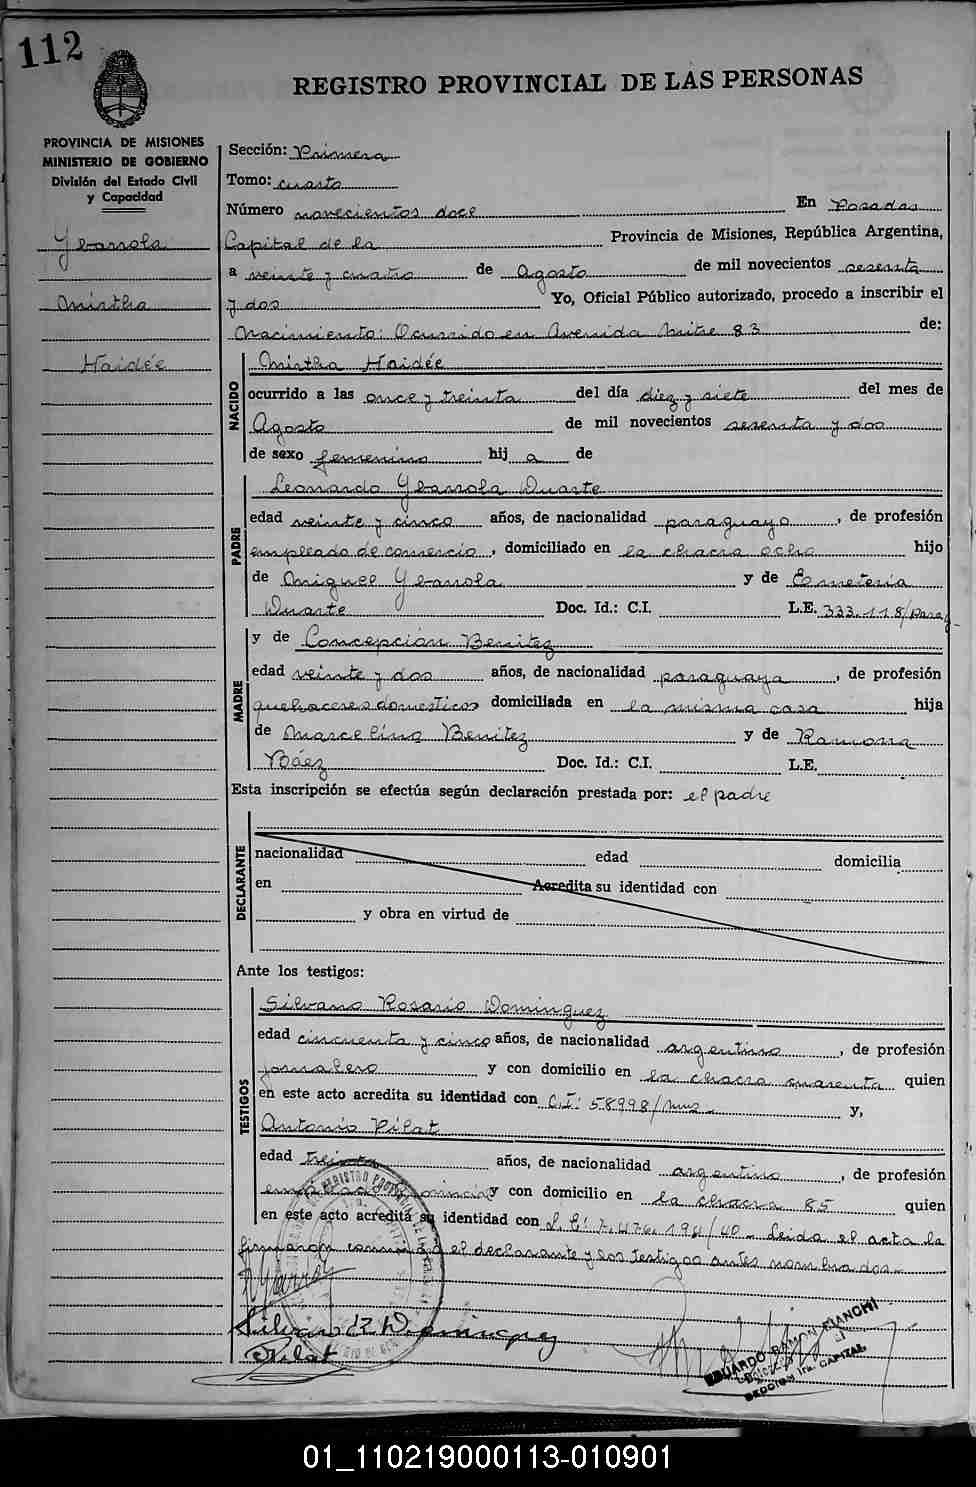 112
REGISTRO PROVINCIAL DE LAS PERSONAS
PROVINCIA DE MISIONES
MINISTERIO DE GOBIERNO
División del Estado Civil
y Capacidad
Ybarrola
Mirtha
Haidée
Sección: Primera
Tomo: cuarto
Número novecientos doce En Posadas
Capital de la Provincia de Misiones, República Argentina,
a veinte y cuatro de Agosto de mil novecientos sesenta
y dos Yo, Oficial Público autorizado, procedo a inscribir el
Nacimiento: Ocurrido en Avenida Mitre 83 de:
NACIDO
Mirtha Haidée
ocurrido a las once y treinta del día diez y siete del mes de
Agosto de mil novecientos sesenta y dos
de sexo femenino hij a de
PADRE
Leonardo Ybarrola Duarte
edad veinte y cinco años, de nacionalidad paraguayo, de profesión
empleado de comercio, domiciliado en la chacra ocho hijo
de Miguel Ybarrola y de Emeteria
Duarte Doc. Id.: C.I. L.E. 333.118/parag
MADRE
y de Concepción Benitez
edad veinte y dos años, de nacionalidad paraguaya, de profesión
quehaceres domesticos domiciliada en la misma casa hija
de Marcelino Benitez y de Ramona
Báez Doc. Id.: C.I. L.E.
Esta inscripción se efectúa según declaración prestada por: el padre
DECLARANTE
nacionalidad edad domicilia
en Acredita su identidad con
y obra en virtud de
Ante los testigos:
TESTIGOS
Silvano Rosario Dominguez
edad cincuenta y cinco años, de nacionalidad argentino, de profesión
jornalero y con domicilio en la chacra cuarenta quien
en este acto acredita su identidad con C.I: 58998/mns- y,
Antonio Pilat
edad treinta años, de nacionalidad argentino, de profesión
empleado provincial y con domicilio en la chacra 85 quien
en este acto acredita su identidad con L.E: 7.476.194/40- Leida el acta la
firmaron conmigo el declarante y los testigos antes nombrados-
Silvano R Dominguez
Pilat
EDUARDO RAMON BIANCHI
SECCION 1ra. CAPITAL
01_110219000113-010901